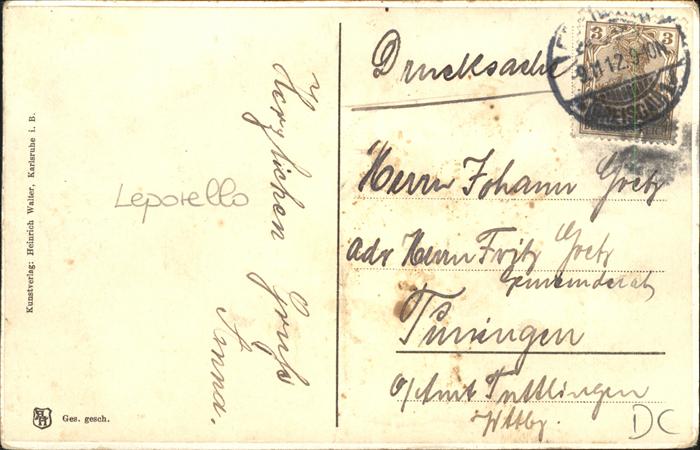 Drucksache
3 3
9.11.12.9-10N
REICH
Herrn Johann Goetz
adr Herrn Fritz Goetz
Gemeinderat
Tuningen
o/Amt Tuttlingen
Wttbg.
Herzlichen Gruß
Anna.
Leporello
Kunstverlag: Heinrich Walter, Karlsruhe i. B.
Ges. gesch.
DC